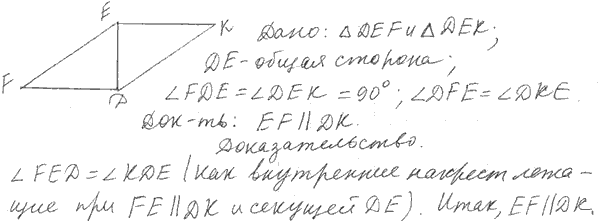 E
K
F
D
Дано: △DEF и △DEK;
DE-общая сторона;
∠FDE=∠DEK=90°; ∠DFE=∠DKE.
Док-ть: EF∥DK.
Доказательство.
∠FED=∠KDE (как внутренние накрест лежа-
щие при FE∥DK и секущей DE). Итак, EF∥DK.